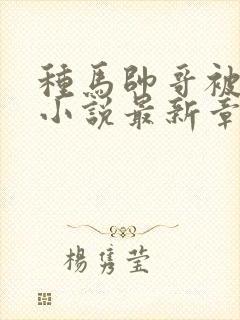 種馬帥哥被
小說最新章
楊雋莹